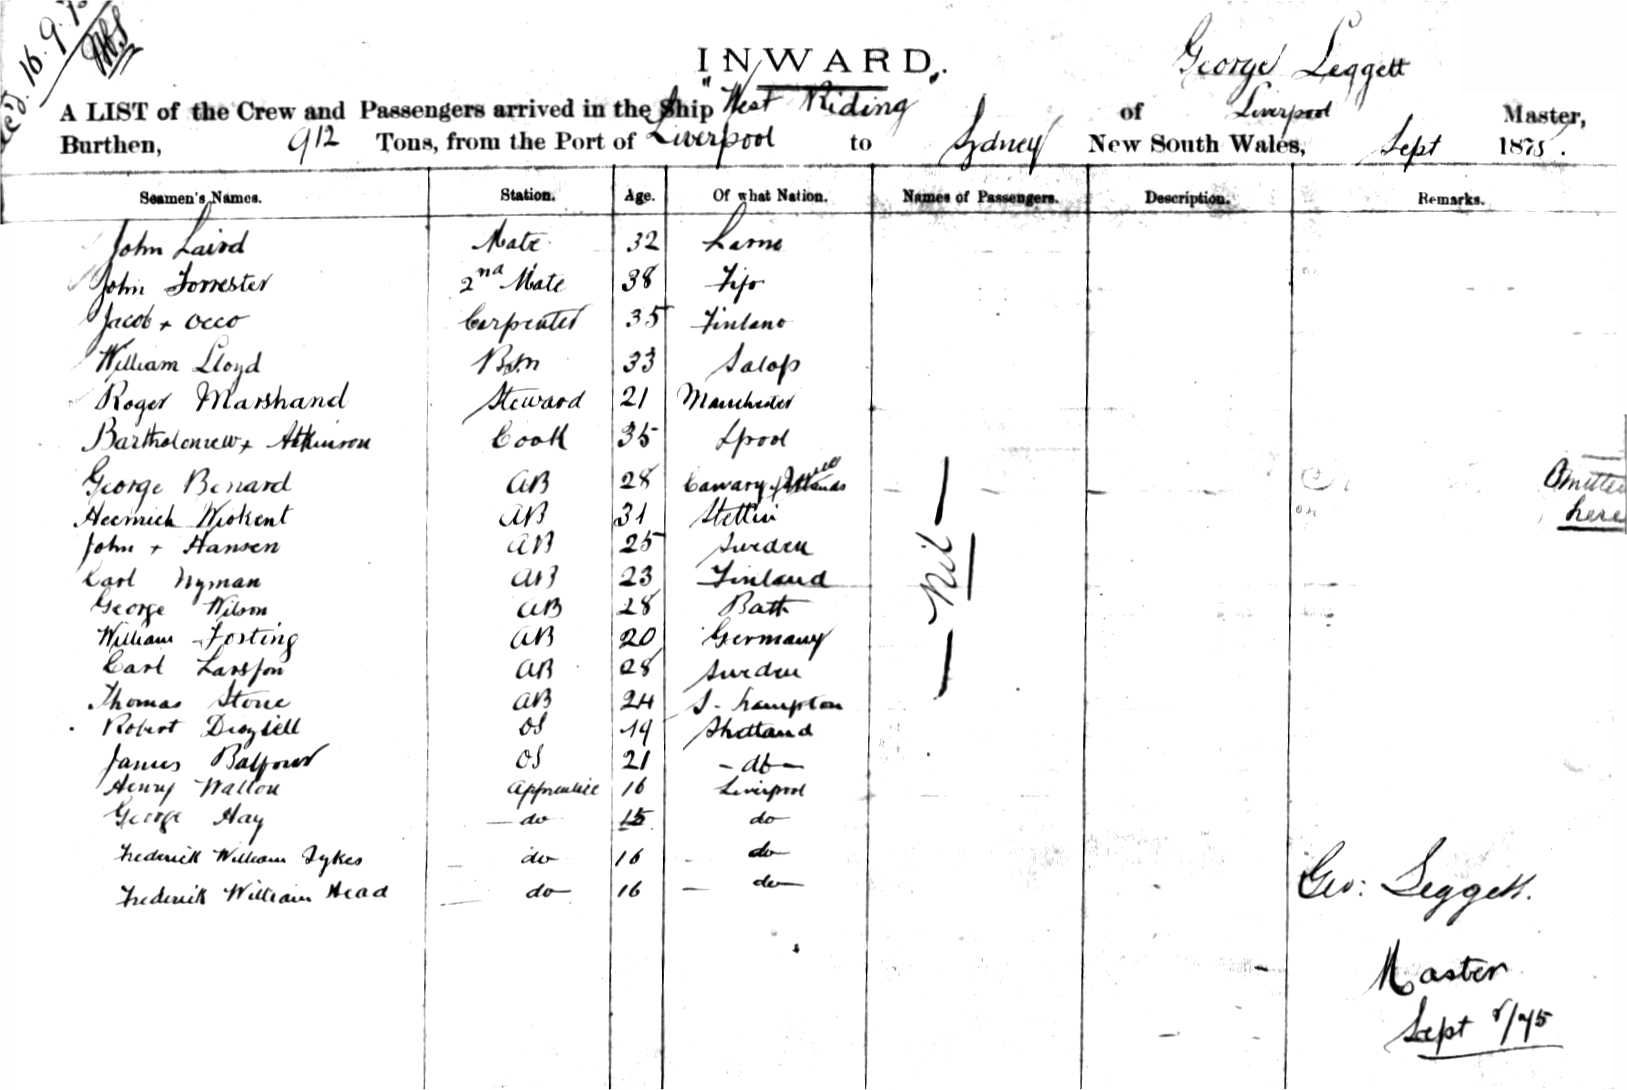 16.9.75
INWARD.
George Leggett
A LIST of the Crew and Passengers arrived in the Ship "West Riding of Liverpool Master,
Burthen, 912 Tons, from the Port of Liverpool to Sydney New South Wales, Sept 1875.
Seamen's Names. Station. Age. Of what Nation. Names of Passengers. Description. Remarks.
John Laird Mate 32 Larne
John Forrester 2nd Mate 38 Fife
Jacob + Occo Carpenter 35 Finland
William Lloyd Bsn 33 Salop
Roger Marshand Steward 21 Manchester
Bartholemew + Atkinson Cook 35 Lpool
George Benard AB 28 Canary Islands
Omitted
here
Heinrich Wickent AB 31 Stettin
John + Hansen AB 25 Sweden
Carl Nyman AB 23 Finland
— Nil —
George Wilson AB 28 Bath
William Forsting AB 20 Germany
Carl Larsson AB 28 Sweden
Thomas Stone AB 24 S-hampton
Robert OS 19 Shetland
James Balfour OS 21 - do -
Henry Walton Apprentice 16 Liverpool
George Hay - do 15 do
Frederick William Sykes do 16 - do
Frederick William Head do 16 - do
Geo: Leggett.
Master
Sept 8/75